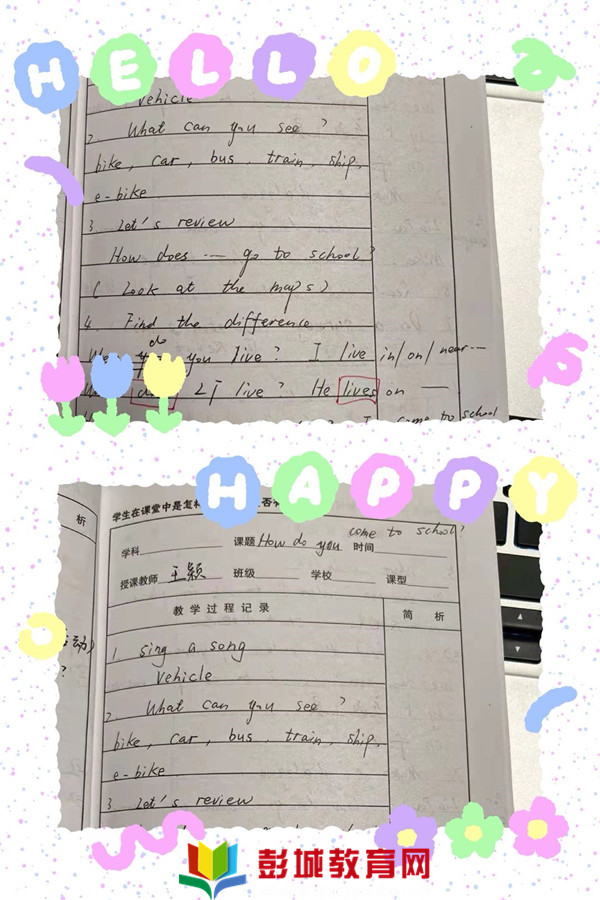 HELLO
vehicle
2. What can you see?
bike, car, bus, train, ship,
e-bike
3 Let's review
How does --- go to school?
( Look at the maps)
4. Find the difference
do
you live? I live in/on/near---
live? He lives on —
come to school
HAPPY
析
学生在课堂中是怎样
come to school?
学科 课题 How do you 时间
授课教师 王颖 班级 学校 课型
教学过程记录 简析
动)
?
1 sing a song
vehicle
2. What can you see?
bike, car, bus, train, ship,
e-bike
3 Let's review
彭城教育网